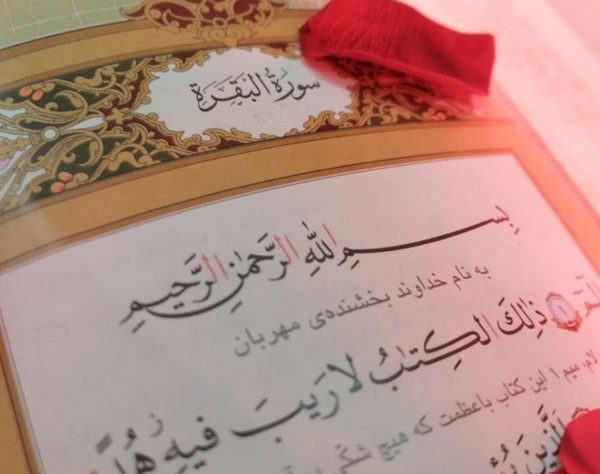 سورة البقرة
بِسْمِ اللَّهِ الرَّحْمَٰنِ الرَّحِيمِ
به نام خداوند بخشنده‌ی مهربان
الٓمٓ ١ ذَٰلِكَ الْكِتَابُ لَا رَيْبَ فِيهِ
لام، میم ۱ این کتاب باعظمت که هیچ شکّی در
الَّذِينَ